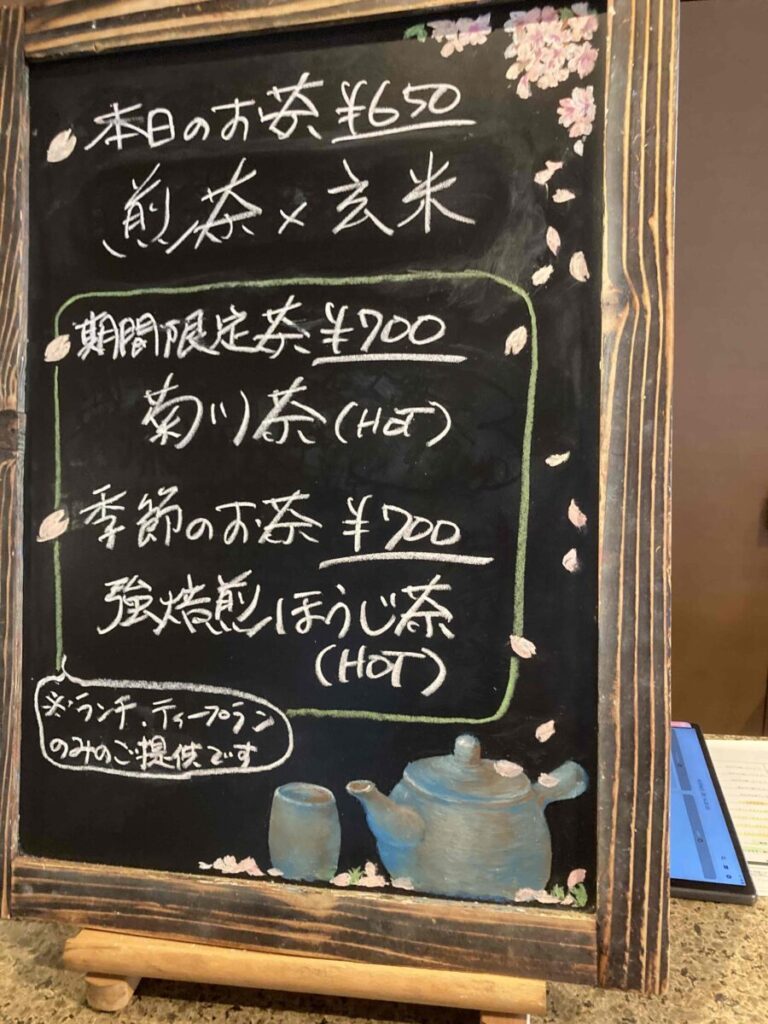 本日のお茶 ¥650
煎茶×玄米
期間限定茶 ¥700
菊川茶(HOT)
季節のお茶 ¥700
強焙煎ほうじ茶
(HOT)
※ランチ、ティープラン
のみのご提供です